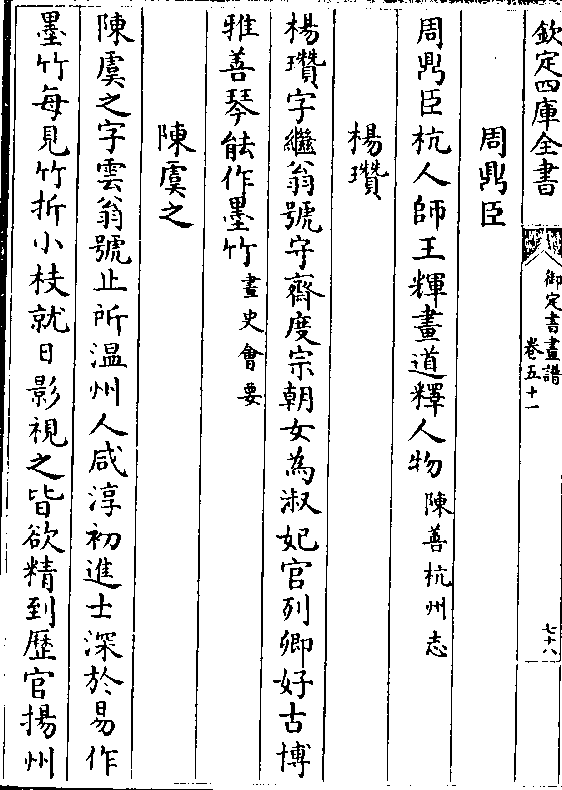 欽定四庫全書
御定書畫譜
卷五十一
七十八
周鼎臣
周鼎臣杭人師王輝畫道釋人物陳善杭州志
楊瓚
楊瓚字繼翁號守齋度宗朝女為淑妃官列卿好古博
雅善琴能作墨竹畫史會要
陳虞之
陳虞之字雲翁號止所溫州人咸淳初進士深於易作
墨竹每見竹折小枝就日影視之皆欲精到歷官揚州